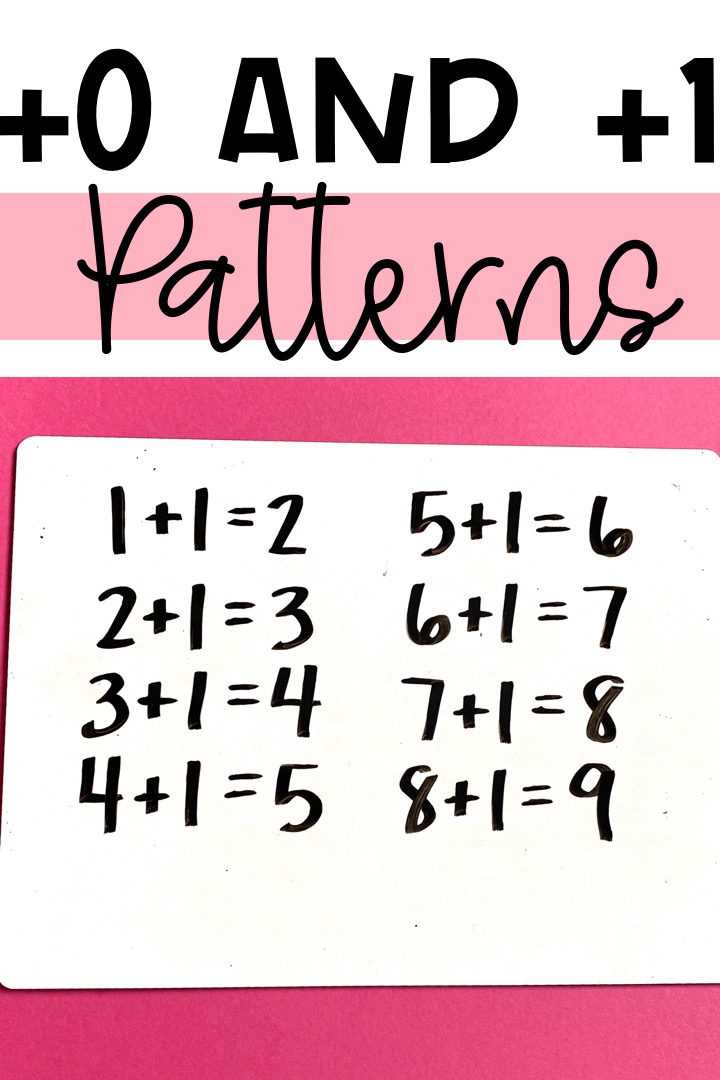 +0 AND +1
Patterns
1+1=2
2+1=3
3+1=4
4+1=5
5+1=6
6+1=7
7+1=8
8+1=9